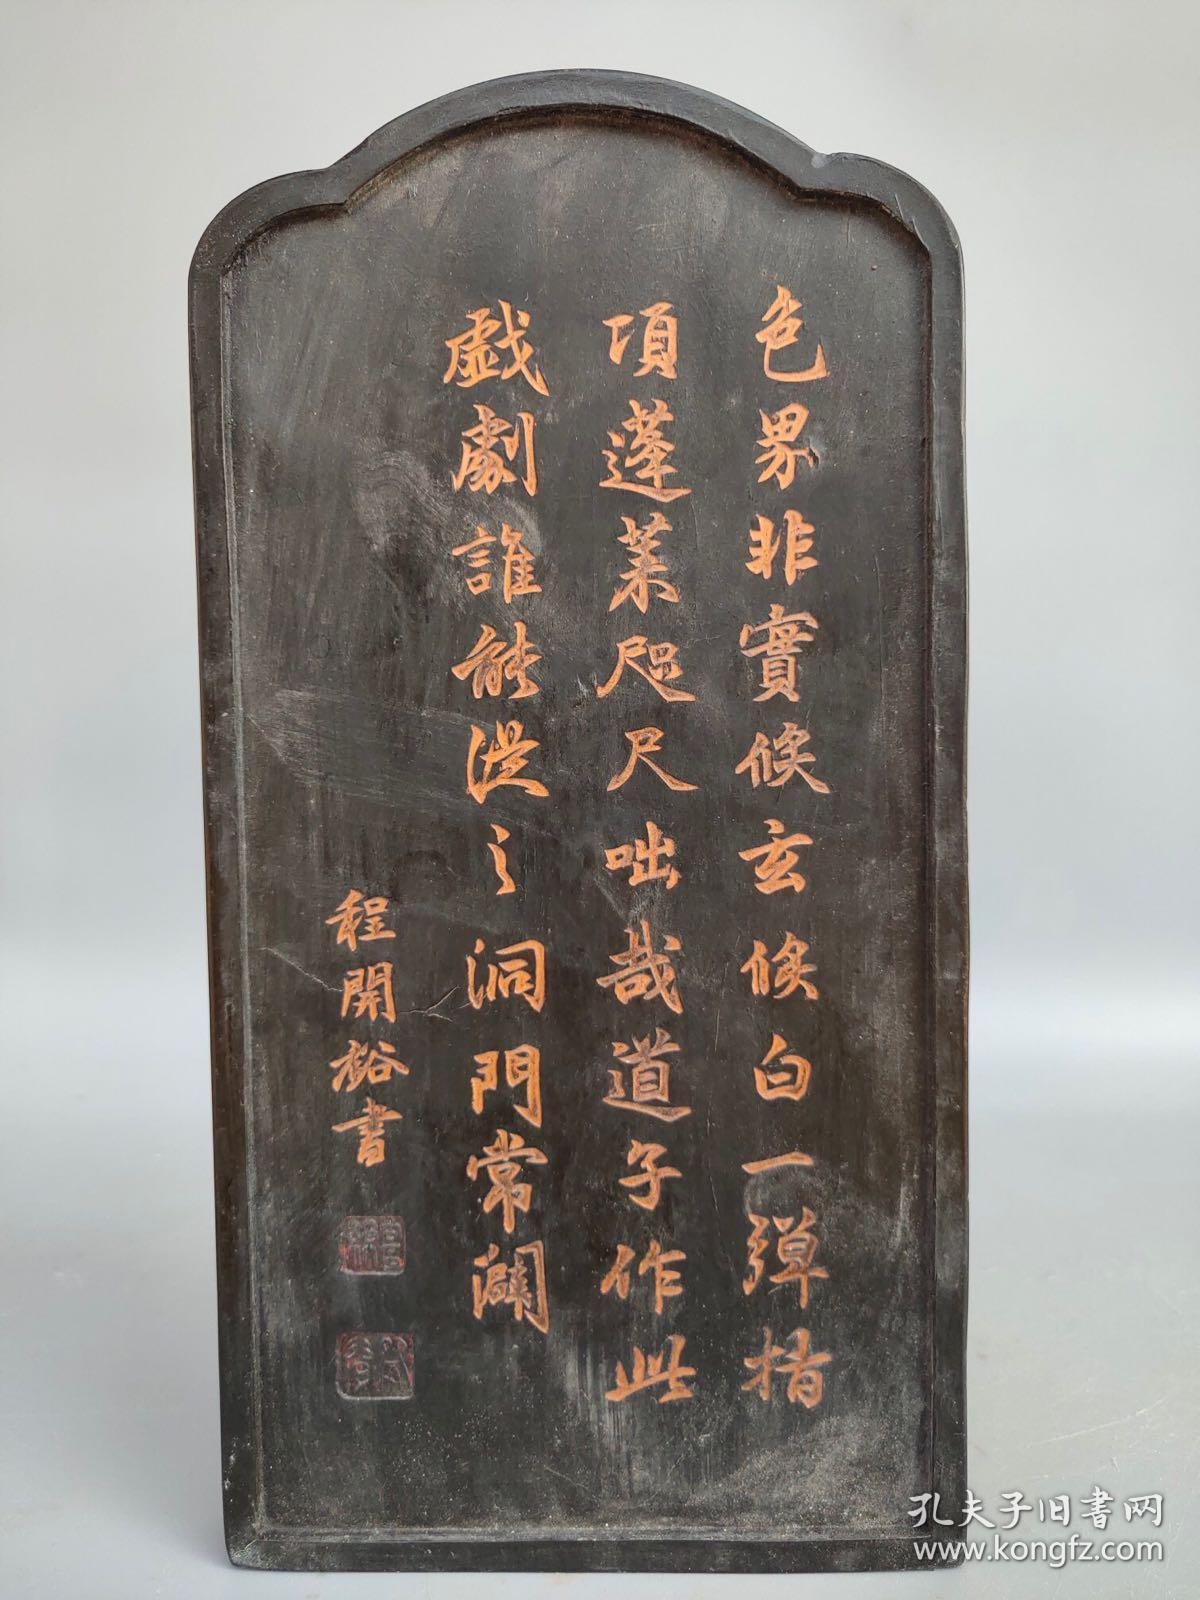 色界非實候玄候白一彈指
項蓬萊咫尺咄哉道子作此
戯劇誰能湜之洞門常濶
程開裕書
孔夫子旧书网
www.kongfz.com